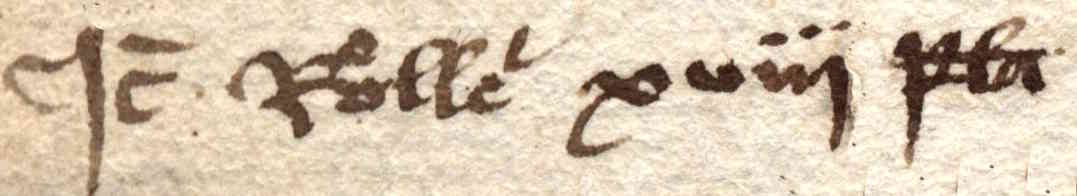 It̄ Rolle xviij pba